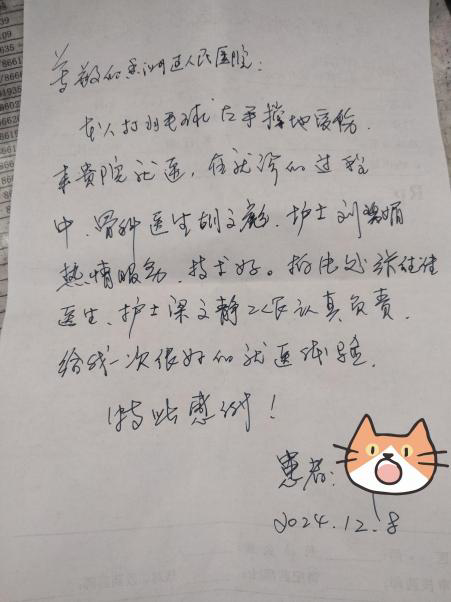 尊敬的区人民医院：
本人打羽毛球左手撑地受伤，
来贵院就医，在就诊的过程
中，骨科医生胡文彪、护士刘媚
热情服务，技术好。拍片处张佳佳
医生、护士梁文静工作认真负责，
给我一次很好的就医体验，
特此感谢！
患者：
2024.12.8